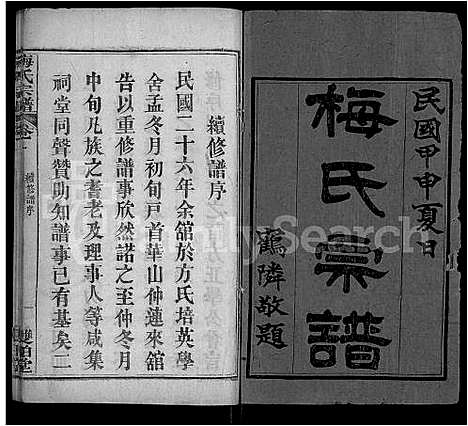 民國甲申夏日
梅氏宗譜
鶴隣敬題
續修譜序
民國二十六年余舘於方氏培英學
舍孟冬月初旬戸首華山仲蓮來舘
告以重修譜事欣然諾之至仲冬月
中旬凡族之耆老及理事人等咸集
祠堂同聲贊助知譜事已有基矣二
梅氏宗譜
卷首
續修譜序
一
FamilySearch